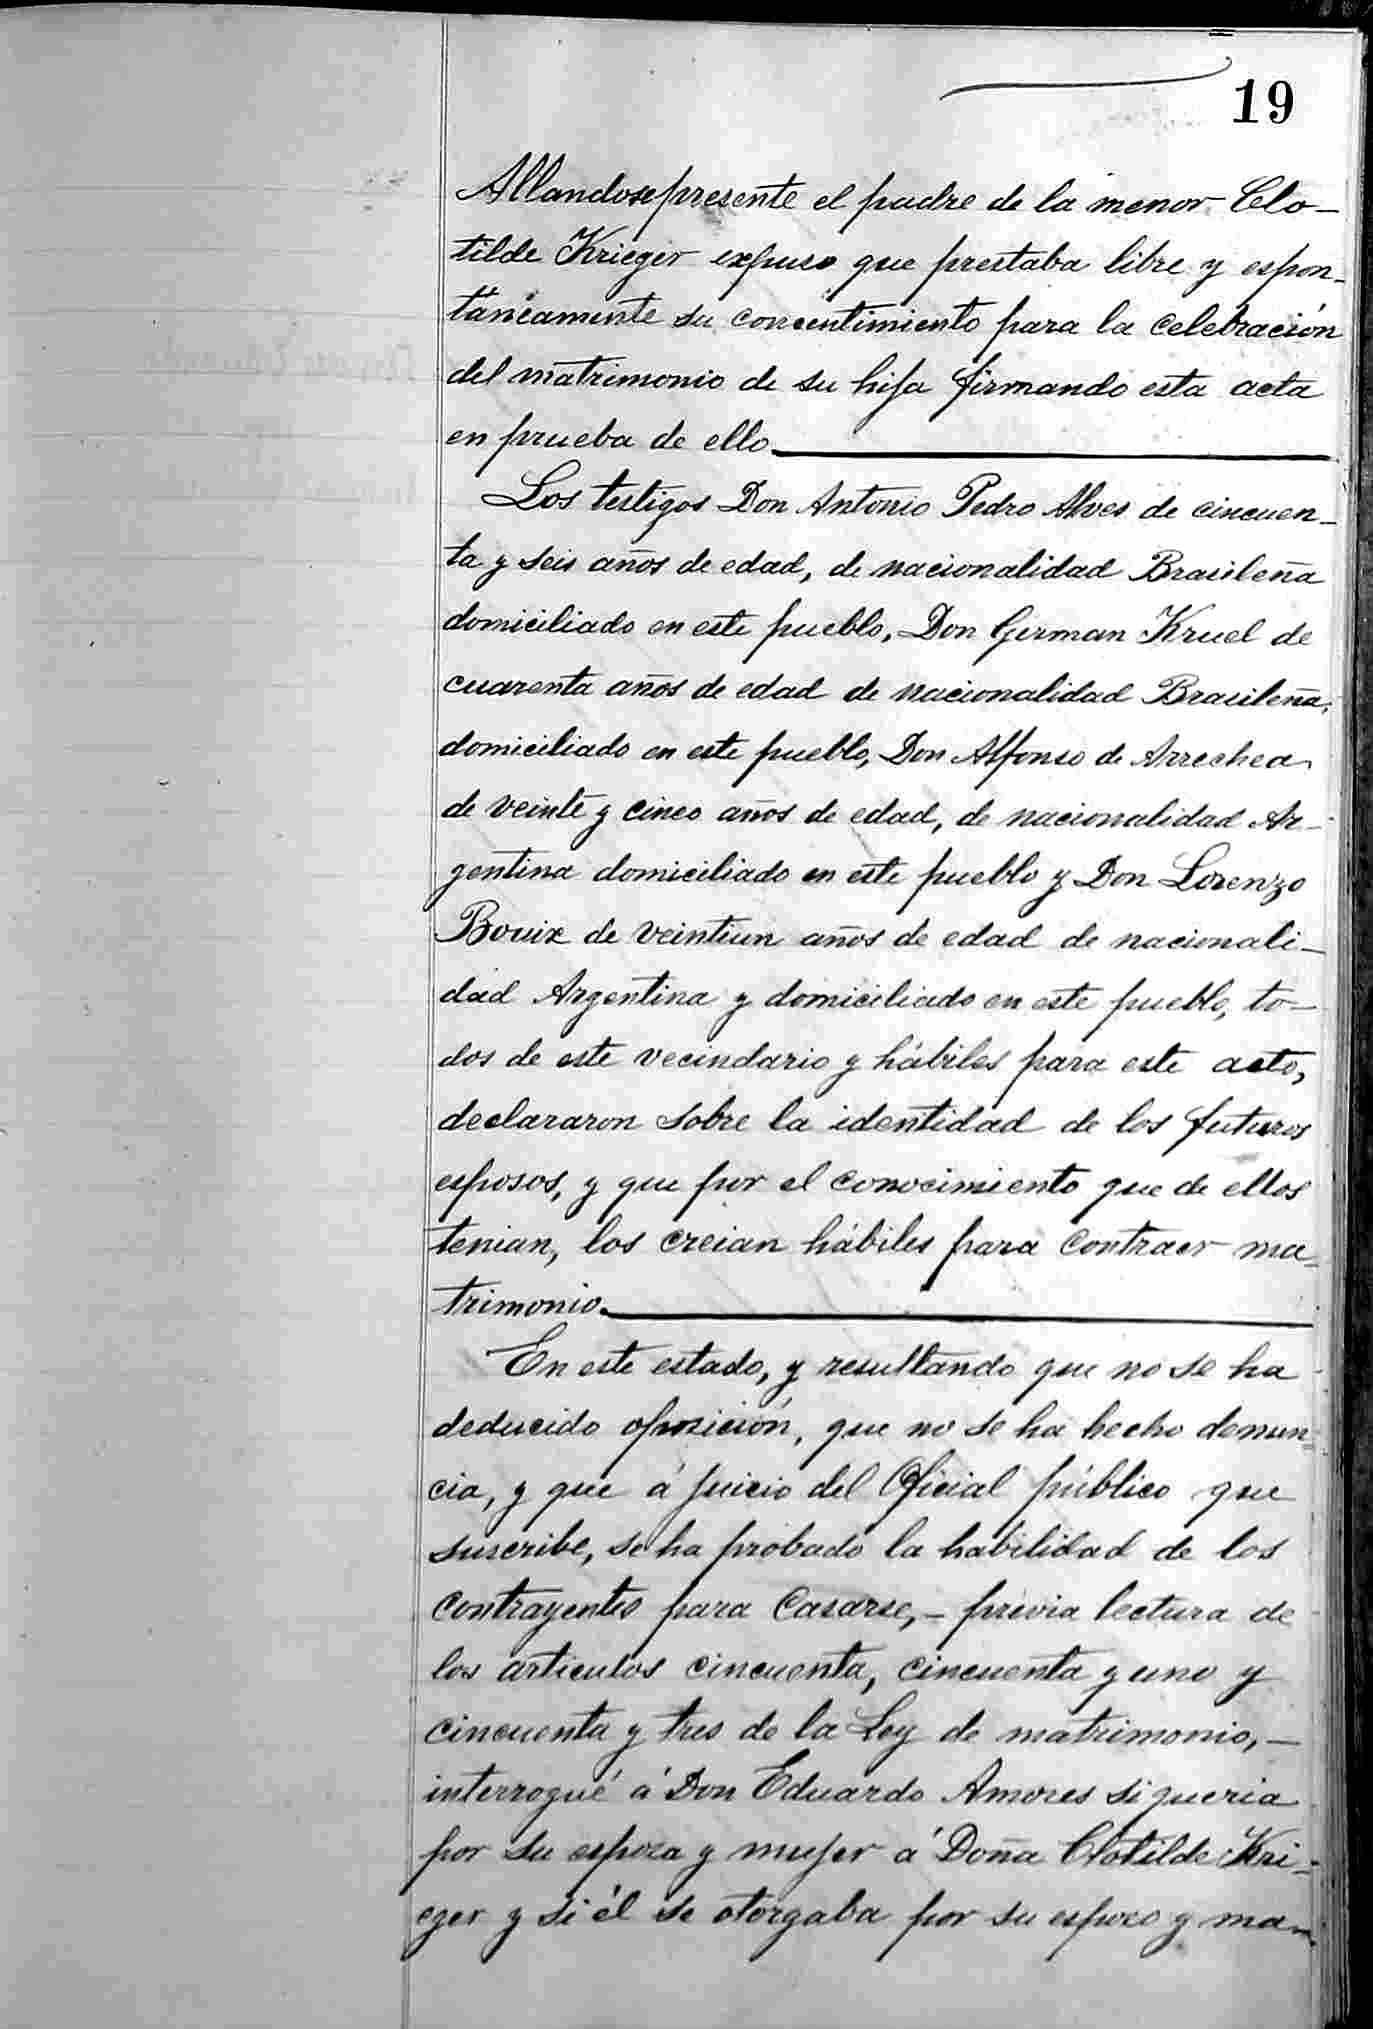 19
Allandose presente el padre de la menor Clo-
tilde Krieger expuso que prestaba libre y espon-
táneamente su concentimiento para la celebración
del matrimonio de su hija firmando esta acta
en prueba de ello
Los testigos Don Antonio Pedro Alves de cincuen-
ta y seis años de edad, de nacionalidad Brasileña
domiciliado en este pueblo, Don German Kruel de
cuarenta años de edad de nacionalidad Brasileña,
domiciliado en este pueblo, Don Alfonso de Arrechea
de veinte y cinco años de edad, de nacionalidad Ar-
gentina domiciliado en este pueblo y Don Lorenzo
Bouix de veintiun años de edad de nacionali-
dad Argentina y domiciliado en este pueblo, to-
dos de este vecindario y hábiles para este acto,
declararon sobre la identidad de los futuros
esposos, y que por el conocimiento que de ellos
tenian, los creian hábiles para contraer ma-
trimonio.
En este estado, y resultando que no se ha
deducido oposición, que no se ha hecho denun-
cia, y que á juicio del Oficial público que
suscribe, se ha probado la habilidad de los
contrayentes para casarse, - previa lectura de
los articulos cincuenta, cincuenta y uno y
cincuenta y tres de la Ley de matrimonio, -
interrogué á Don Eduardo Amores si queria
por su espoza y mujer á Doña Clotilde Kri-
eger y si él se otorgaba por su espozo y ma-